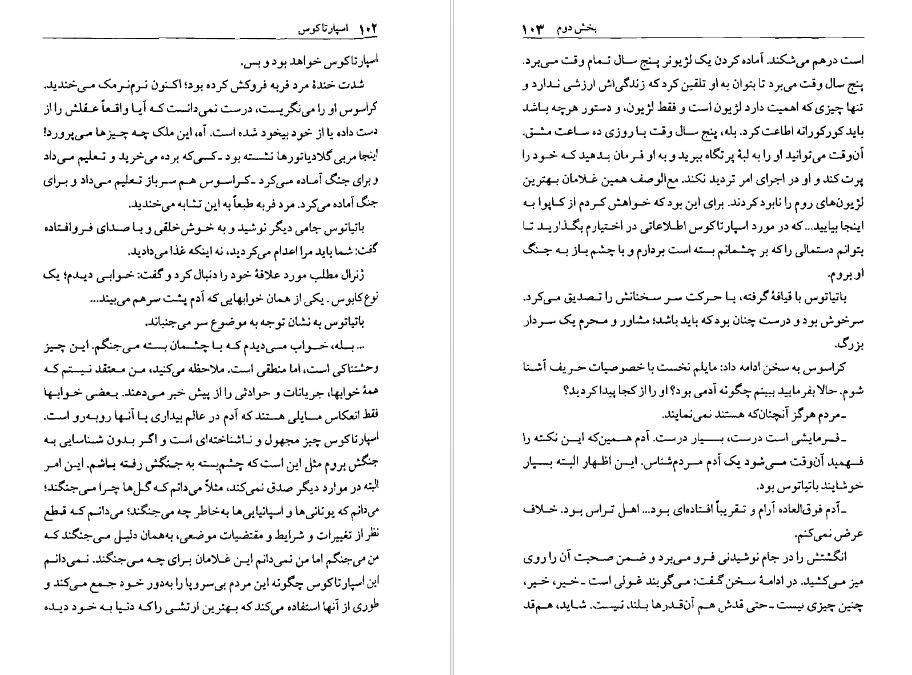 ۱۰۲ اسپارتاکوس
اسپارتاکوس خواهد بود و بس.
شدت خندهٔ مرد فربه فروکش کرده بود؛ اکنون نرم‌نرمک می‌خندید.
کراسوس او را می‌نگریست، درست نمی‌دانست که آیا واقعاً عقلش را از
دست داده یا از خود بیخود شده است. آه، این ملک چه چیزها می‌پرورد!
اینجا مربی گلادیاتورها نشسته بود ـ کسی‌که برده می‌خرید و تعلیم می‌داد
و برای جنگ آماده می‌کرد ـ کراسوس هم سرباز تعلیم می‌داد و برای
جنگ آماده می‌کرد. مرد فربه طبعاً به این تشابه می‌خندید.
باتیاتوس جامی دیگر نوشید و به خوش‌خلقی و با صدای فروافتاده
گفت: شما باید مرا اعدام می‌کردید، نه اینکه غذا می‌دادید.
ژنرال مطلب مورد علاقهٔ خود را دنبال کرد و گفت: خوابی دیدم؛ یک
نوع کابوس. یکی از همان خوابهایی که آدم پشت سرهم می‌بیند...
باتیاتوس به نشان توجه به موضوع سر می‌جنباند.
... بـله، خواب مـی‌دیدم که بـا چشمان بسته می‌جنگم. این چیز
وحشتناکی است، اما منطقی است. ملاحظه می‌کنید، من معتقد نیستم که
همهٔ خوابها، جریانات و حوادثی را از پیش خبر می‌دهند. بعضی خوابها
فقط انعکاس مسایلی هستند که آدم در عالم بیداری با آنها روبه‌رو است.
اسپارتاکوس چیز مجهول و ناشناخته‌ای است و اگر بدون شناسایی به
جنگش بروم مثل این است که چشم‌بسته به جنگش رفته باشم. این امر
البته در موارد دیگر صدق نمی‌کند، مثلاً می‌دانم که گل‌ها چرا می‌جنگند؛
می‌دانم که یونانی‌ها و اسپانیایی‌ها به‌خاطر چه می‌جنگند؛ می‌دانم که قطع
نظر از تغییرات و شرایط و مقتضیات موضعی، به‌همان دلیل می‌جنگند که
من می‌جنگم اما من نمی‌دانم این غلامان برای چه می‌جنگند. نمی‌دانم
این اسپارتاکوس چگونه این مردم بی‌سروپا را به‌دور خود جمع می‌کند و
طوری از آنها استفاده می‌کند که بهترین ارتشی را که دنیا به خود دیده
بخش دوم ۱۰۳
است درهم می‌شکند. آماده کردن یک لژیونر پنج سال تمام وقت می‌برد.
پنج سال وقت می‌برد تا بتوان به او تلقین کرد که زندگی‌اش ارزشی ندارد و
تنها چیزی که اهمیت دارد لژیون است و فقط لژیون، و دستور هرچه باشد
باید کورکورانه اطاعت کرد. بله، پنج سال وقت با روزی ده ساعت مشق.
آن‌وقت می‌توانید او را به لبهٔ پرتگاه ببرید و به او فرمان بدهید که خود را
پرت کند و او در اجرای امر تردید نکند. مع‌الوصف همین غلامان بهترین
لژیون‌های روم را نابود کردند. برای این بود که خواهش کردم از کاپوا به
اینجا بیایید... که در مورد اسپارتاکوس اطلاعاتی در اختیارم بگذارید تا
بتوانم دستمالی را که بر چشمانم بسته است بردارم و با چشم باز به جنگ
او بروم.
باتیاتوس با قیافهٔ گرفته، با حرکت سر سخنانش را تصدیق می‌کرد.
سرخوش بود و درست چنان بود که باید باشد؛ مشاور و محرم یک سردار
بزرگ.
کراسوس به سخن ادامه داد: مایلم نخست با خصوصیات حریف آشنا
شوم. حالا بفرمایید ببینم چگونه آدمی بود؟ او را از کجا پیدا کردید؟
ـ مردم هرگز آنچنان‌که هستند نمی‌نمایند.
ـ فـرمایشی است درست، بسیار درست. آدم همین‌که ایـن نکته را
فهمید آن‌وقت می‌شود یک آدم مردم‌شناس. این اظهار البته بسیار
خوشایند باتیاتوس بود.
ـ آدم فوق‌العاده آرام و تقریباً افتاده‌ای بود... اهل تراس بود. خلاف
عرض نمی‌کنم.
انگشتش را در جام نوشیدنی فرو می‌برد و ضمن صحبت آن را روی
میز می‌کشید. در ادامهٔ سخن گفت: می‌گویند غولی است ـ خیر، خیر،
چنین چیزی نیست ـ حتی قدش هم آن‌قدرها بلند نیست. شاید، هم‌قد